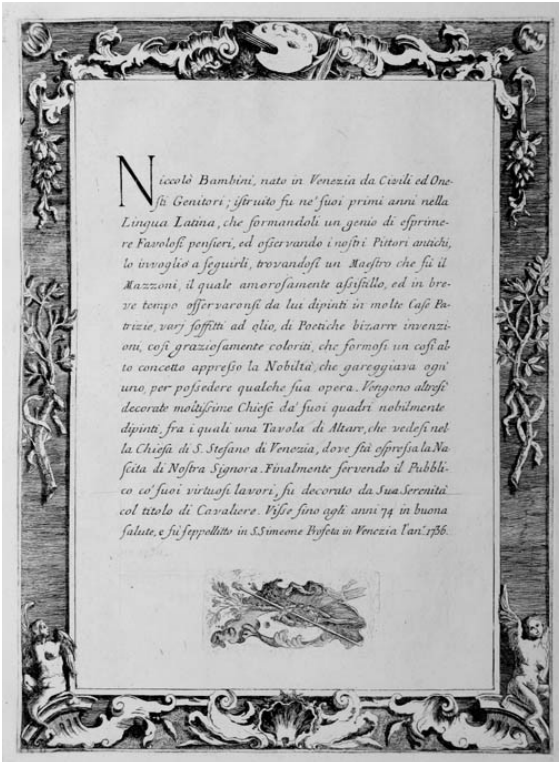 Niccolò Bambini, nato in Venezia da Civili ed One-
ſti Genitori; iſtruito fu ne' ſuoi primi anni nella
Lingua Latina, che formandoli un genio di eſprime-
re Favoloſi penſieri, ed oſservando i noſtri Pittori antichi,
lo invogliò a ſeguirli, trovandoſi un Maeſtro che fù il
Mazzoni, il quale amoroſamente aſsiſtillo, ed in bre-
ve tempo oſſervaronſi da lui dipinti in molte Caſe Pa-
trizie, varj ſoffitti ad oglio, di Poetiche bizarre invenzi-
oni, coſi grazioſamente coloriti, che formoſi un coſi al-
to concetto appreſso la Nobiltà, che gareggiava ogn'
uno, per poſsedere qualche ſua opera. Vengono altreſi
decorate moltiſsime Chieſe da' ſuoi quadri nobilmente
dipinti, fra i quali una Tavola di Altare, che vedeſi nel-
la Chieſa di S. Stefano di Venezia, dove ſtà eſpreſsa la Na-
ſcita di Noſtra Signora. Finalmente ſervendo il Pubbli-
co co' ſuoi virtuoſi lavori, fu decorato da Sua Serenità
col titolo di Cavaliere. Viſse fino agli anni 74 in buona
ſalute, e fù ſeppellitto in S. Simeone Profeta in Venezia l'an.º 1736.